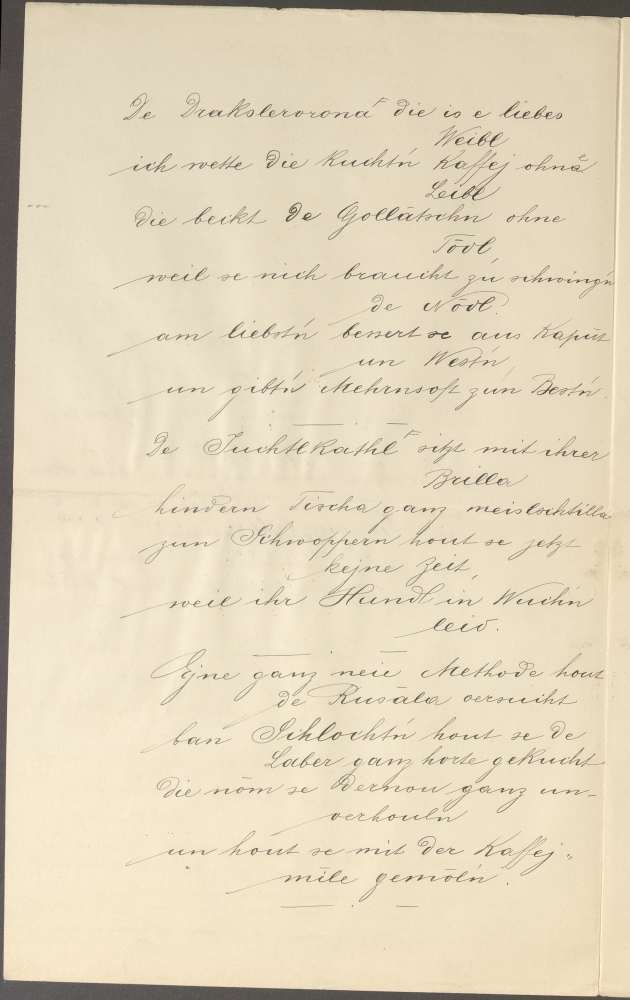 De Drakslerorona die is e liebes
Weibl
ich wette die kuchtń Kaffej ohne
Leibl
die beckt de Gollātschn ohne
Tōdl
weil se nich braucht zu schwingń
de Nōdl.
am liebstń bessert se aus Kaput
un Westń
un gibtń Mehrnsoft zun Bestń.
De Juchtlkathl sitzt mit ihrer
Brilla
hindern Tischa ganz meislschtilla
zun Schwoppern hout se jetzt
kejne Zeit
weil ihr Hundl in Wuchń
leid.
Ejne ganz neie Methode hout
de Rusāla versucht
ban Schlochtń hout se de
Laber ganz horte gekucht
die nōm se dernou ganz un-
verhouln
un hout se mit der Kaffej„
mīle gemōlń.